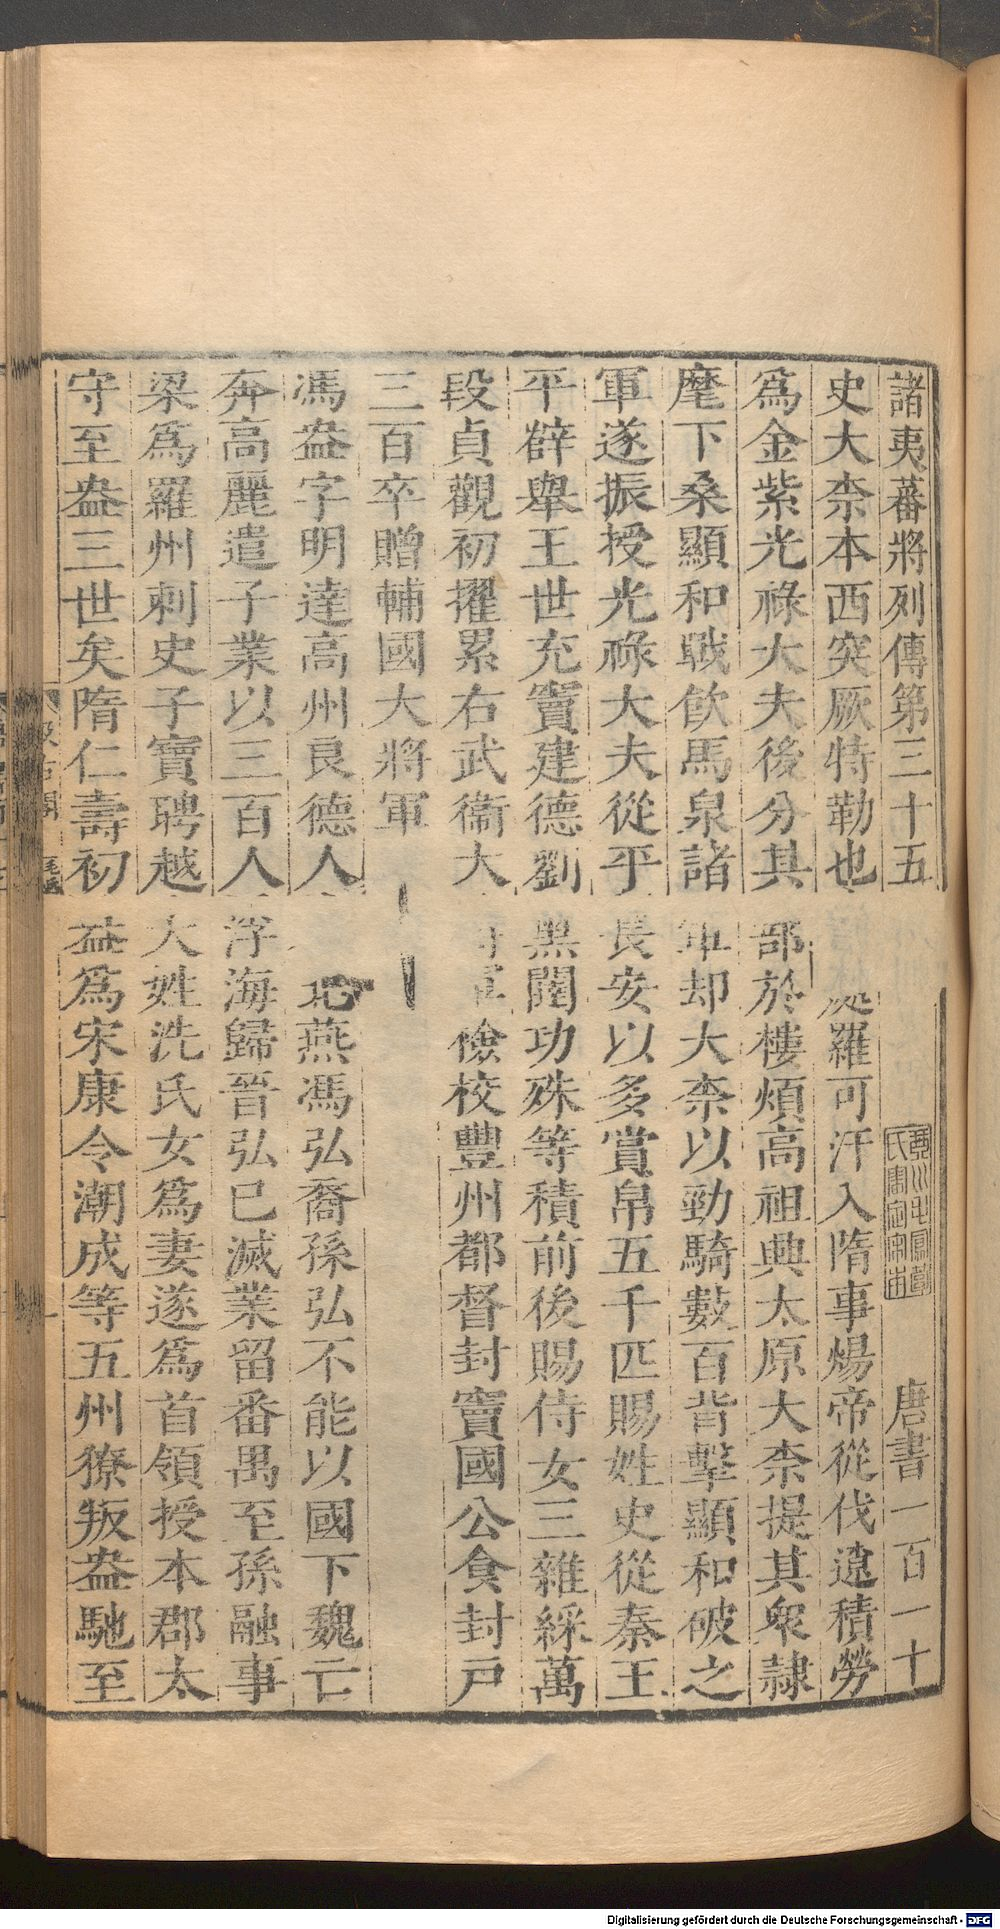 諸夷蕃將列傳第三十五 唐書一百一十
史大柰本西突厥特勒也 處羅可汗入隋事煬帝從伐遼積勞
爲金紫光祿大夫後分其部於樓煩高祖興太原大柰提其衆隷
麾下桑顯和戰飮馬泉諸軍却大柰以勁騎數百背擊顯和破之
軍遂振授光祿大夫從平長安以多賞帛五千匹賜姓史從秦王
平薛舉王世充竇建德劉黑闥功殊等積前後賜侍女三雜綵萬
段貞觀初擢累右武衞大將軍檢校豐州都督封竇國公食封戸
三百卒贈輔國大將軍
馮盎字明達高州良德人 北燕馮弘裔孫弘不能以國下魏亡
奔高麗遣子業以三百人浮海歸晉弘已滅業留番禺至孫融事
梁爲羅州刺史子寶聘越大姓洗氏女爲妻遂爲首領授本郡太
守至盎三世矣隋仁壽初盎爲宋康令潮成等五州獠叛盎馳至
Digitalisierung gefördert durch die Deutsche Forschungsgemeinschaft - DFG